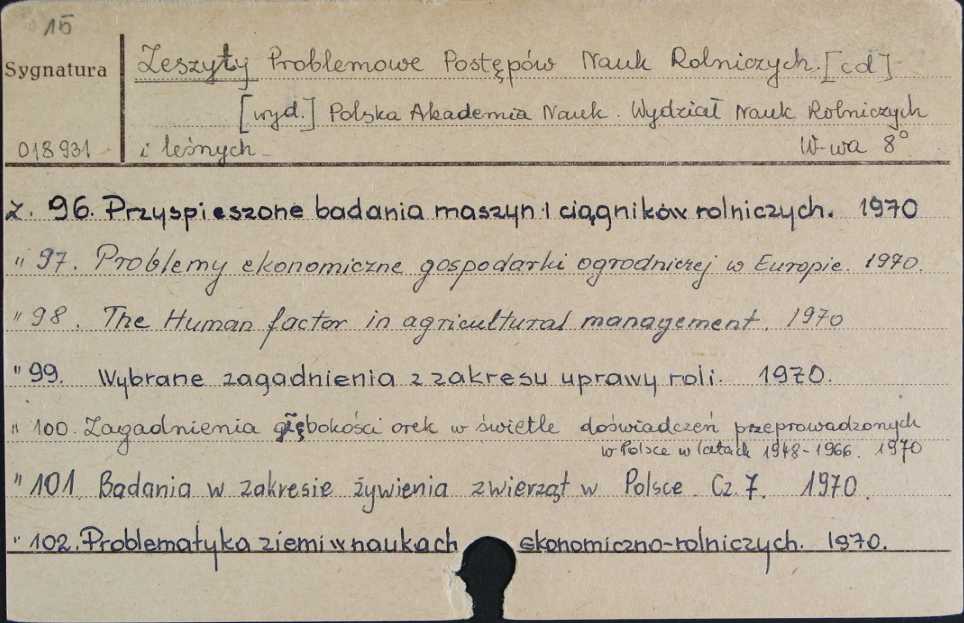 15
Sygnatura
Zeszyty Problemowe Postępów Nauk Rolniczych. [cd]
[wyd.] Polska Akademia Nauk. Wydział Nauk Rolniczych
018931
i leśnych - W-wa 8°
Z. 96. Przyspieszone badania maszyn i ciągników rolniczych. 1970
" 97. Problemy ekonomiczne gospodarki ogrodniczej w Europie. 1970.
" 98. The Human factor in agricultural management. 1970
" 99. Wybrane zagadnienia z zakresu uprawy roli. 1970.
" 100. Zagadnienia głębokości orek w świetle doświadczeń przeprowadzonych
w Polsce w latach 1948-1966. 1970
" 101. Badania w zakresie żywienia zwierząt w Polsce. Cz. 7. 1970.
" 102. Problematyka ziemi w naukach ekonomiczno-rolniczych. 1970.